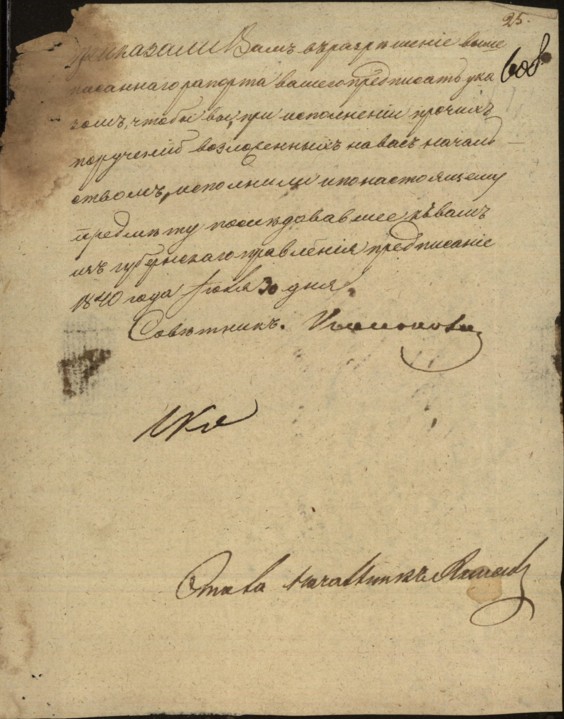 25.
608
приказали Вамъ въ разрѣшеніе выше
писаннаго рапорта вашего предписать ука
зомъ, чтобы вы, при исполненіи прочихъ
порученій возложенныхъ на васъ началь
ствомъ, исполнили и по настоящему
предмѣту послѣдовавшее къ вамъ
изъ губернскаго правленія предписаніе
1840 года Іюля 30 дня
Совѣтникъ.